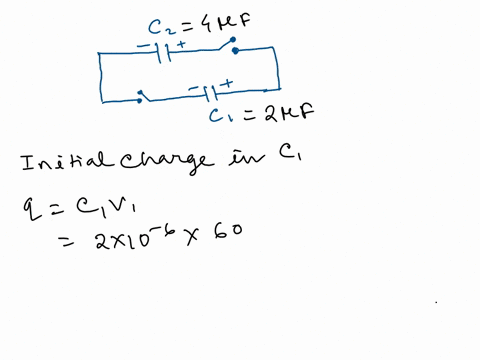 C₂ = 4μF
- +
- +
C₁ = 2μF
Initial charge in C₁
q = C₁V₁
= 2×10⁻⁶ × 60